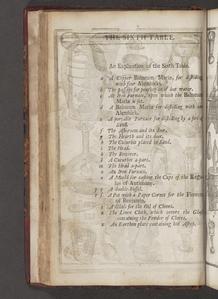 THE SIXTH TABLE.
An Explication of the Sixth Table.
a A Copper Balneum Mariæ, for distilling
with four Alembicks.
b The passage for pouring in of hot water.
c An Iron Furnace, upon which the Balneum
Mariæ is set.
d A Balneum Mariæ for distilling with one
Alembick.
e A portable Furnace for distilling by a
sand.
f The Ashroom and its door.
g The Hearth and its door.
h The Cucurbit placed in Sand.
i The Head.
k The Receiver.
l A Cucurbit a-part.
m The Head a-part.
n An Iron Furnace.
o A Mould for casting the Cups of the Regu-
lus of Antimony.
p A double Vessel.
A Pot with a Paper Cornet for the Flowers
of Benjamin.
A Glass for the Oil of Cloves.
The Linen Cloth, which covers the Glass
containing the Powder of Cloves.
An Earthen plate containing hot Ashes.